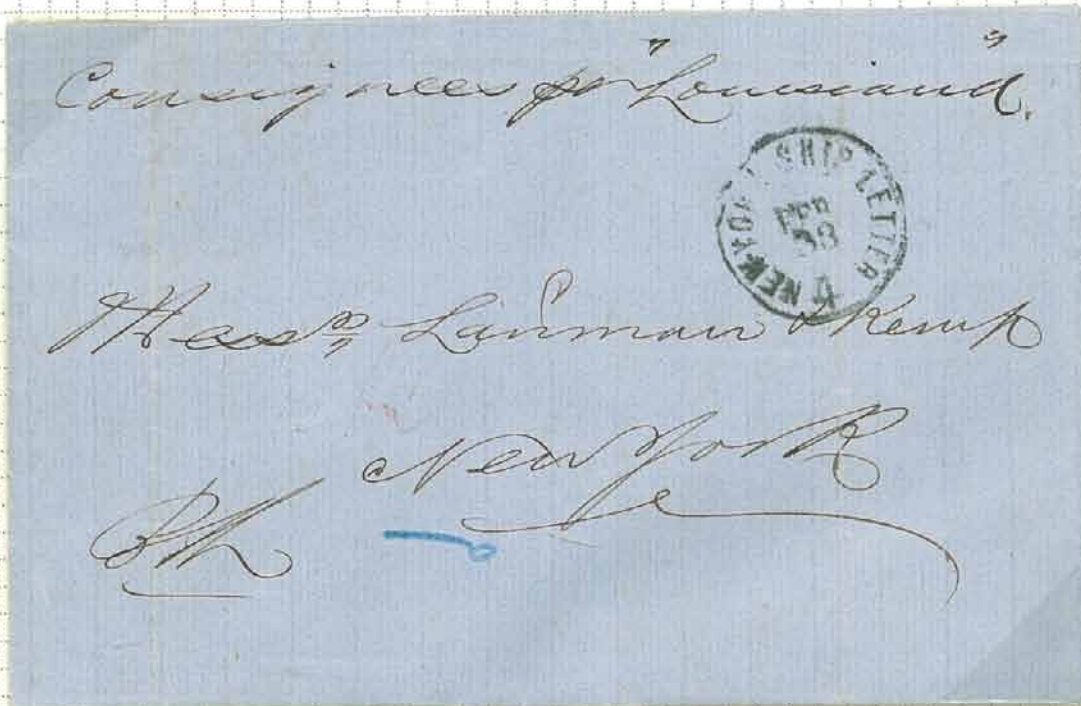 Consignees pr "Louisiana".
NEW YORK SHIP LETTER
FEB
Messrs Lanman & Kemp
New York